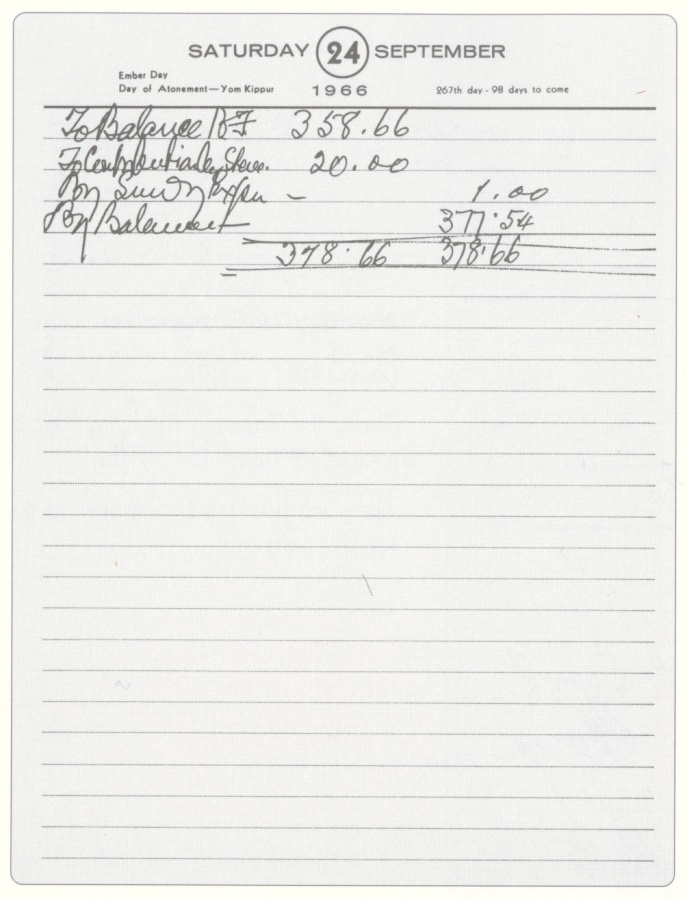 SATURDAY 24 SEPTEMBER
Ember Day
Day of Atonement—Yom Kippur 1966 267th day - 98 days to come
To Balance BF 358.66
To Contribution by Steve. 20.00
By Sundry Expen - 1.00
By Balance 377.54
378.66 378.66